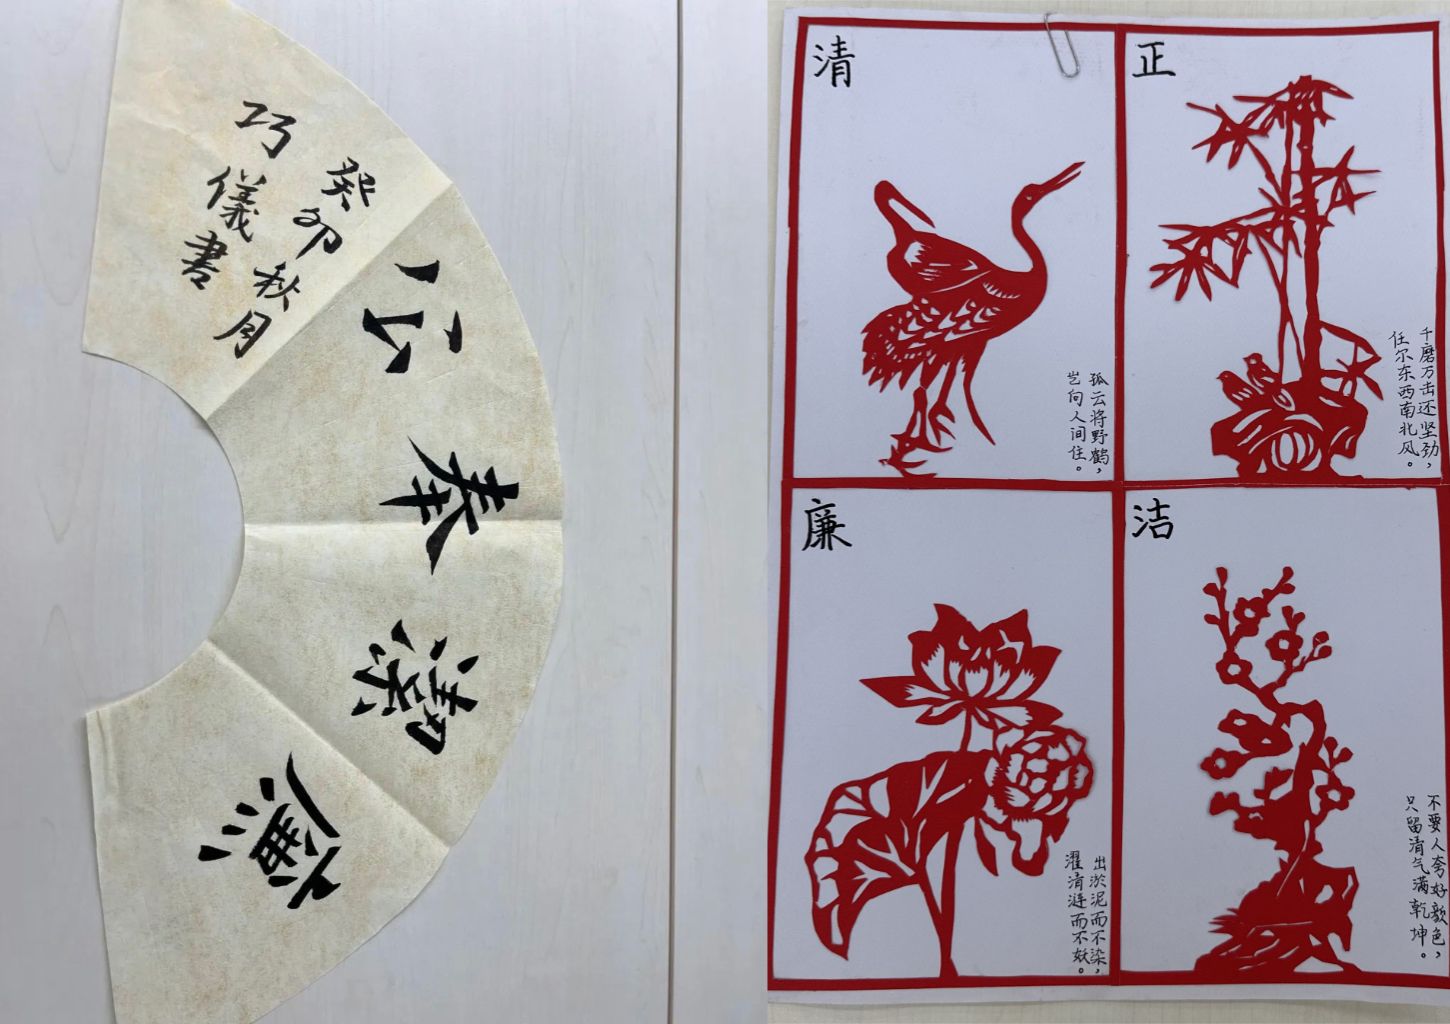 廉潔奉公
癸卯秋月
巧儀書
清
孤云将野鹤，
岂向人间住。
正
千磨万击还坚劲，
任尔东西南北风。
廉
出淤泥而不染，
濯清涟而不妖。
洁
不要人夸好颜色，
只留清气满乾坤。